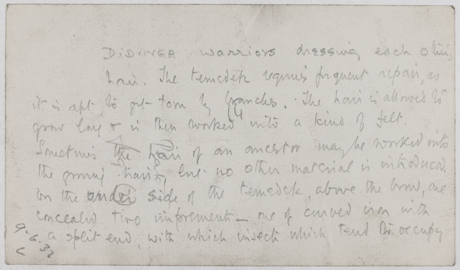 DIDINGA warriors dressing each other's
hair. The temedek requires frequent repair, as
it is apt to get torn by branches. The hair is allowed to
grow long & is then worked into a kind of felt.
Sometimes the hair of an ancestor may be worked into
the growing hair, but no other material is introduced.
On the under side of the temedek, above the brow, are
concealed two implements – one of curved iron with
a split end, with which insects which tend to occupy
9.6.32